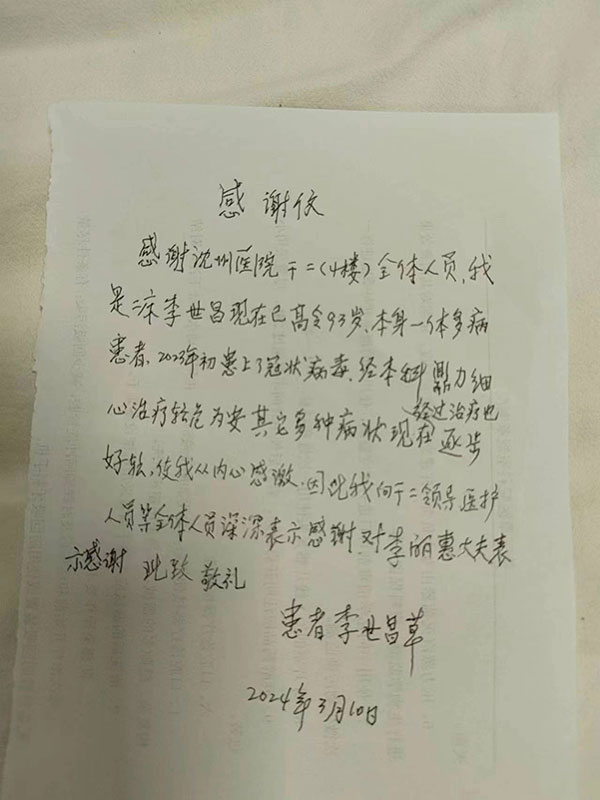 感谢信
感谢沈州医院干二(4楼)全体人员，我
是二床李世昌现在已高令93岁，本身一体多病
患者，2023年初患上了冠状病毒，经本科鼎力细
心治疗转危为安其它多种病状经过治疗也现在逐步
好转，使我从内心感激，因此我向干二领导医护
人员等全体人员深深表示感谢，对李丽惠大夫表
示感谢 此致 敬礼
患者李世昌草
2024年3月10日